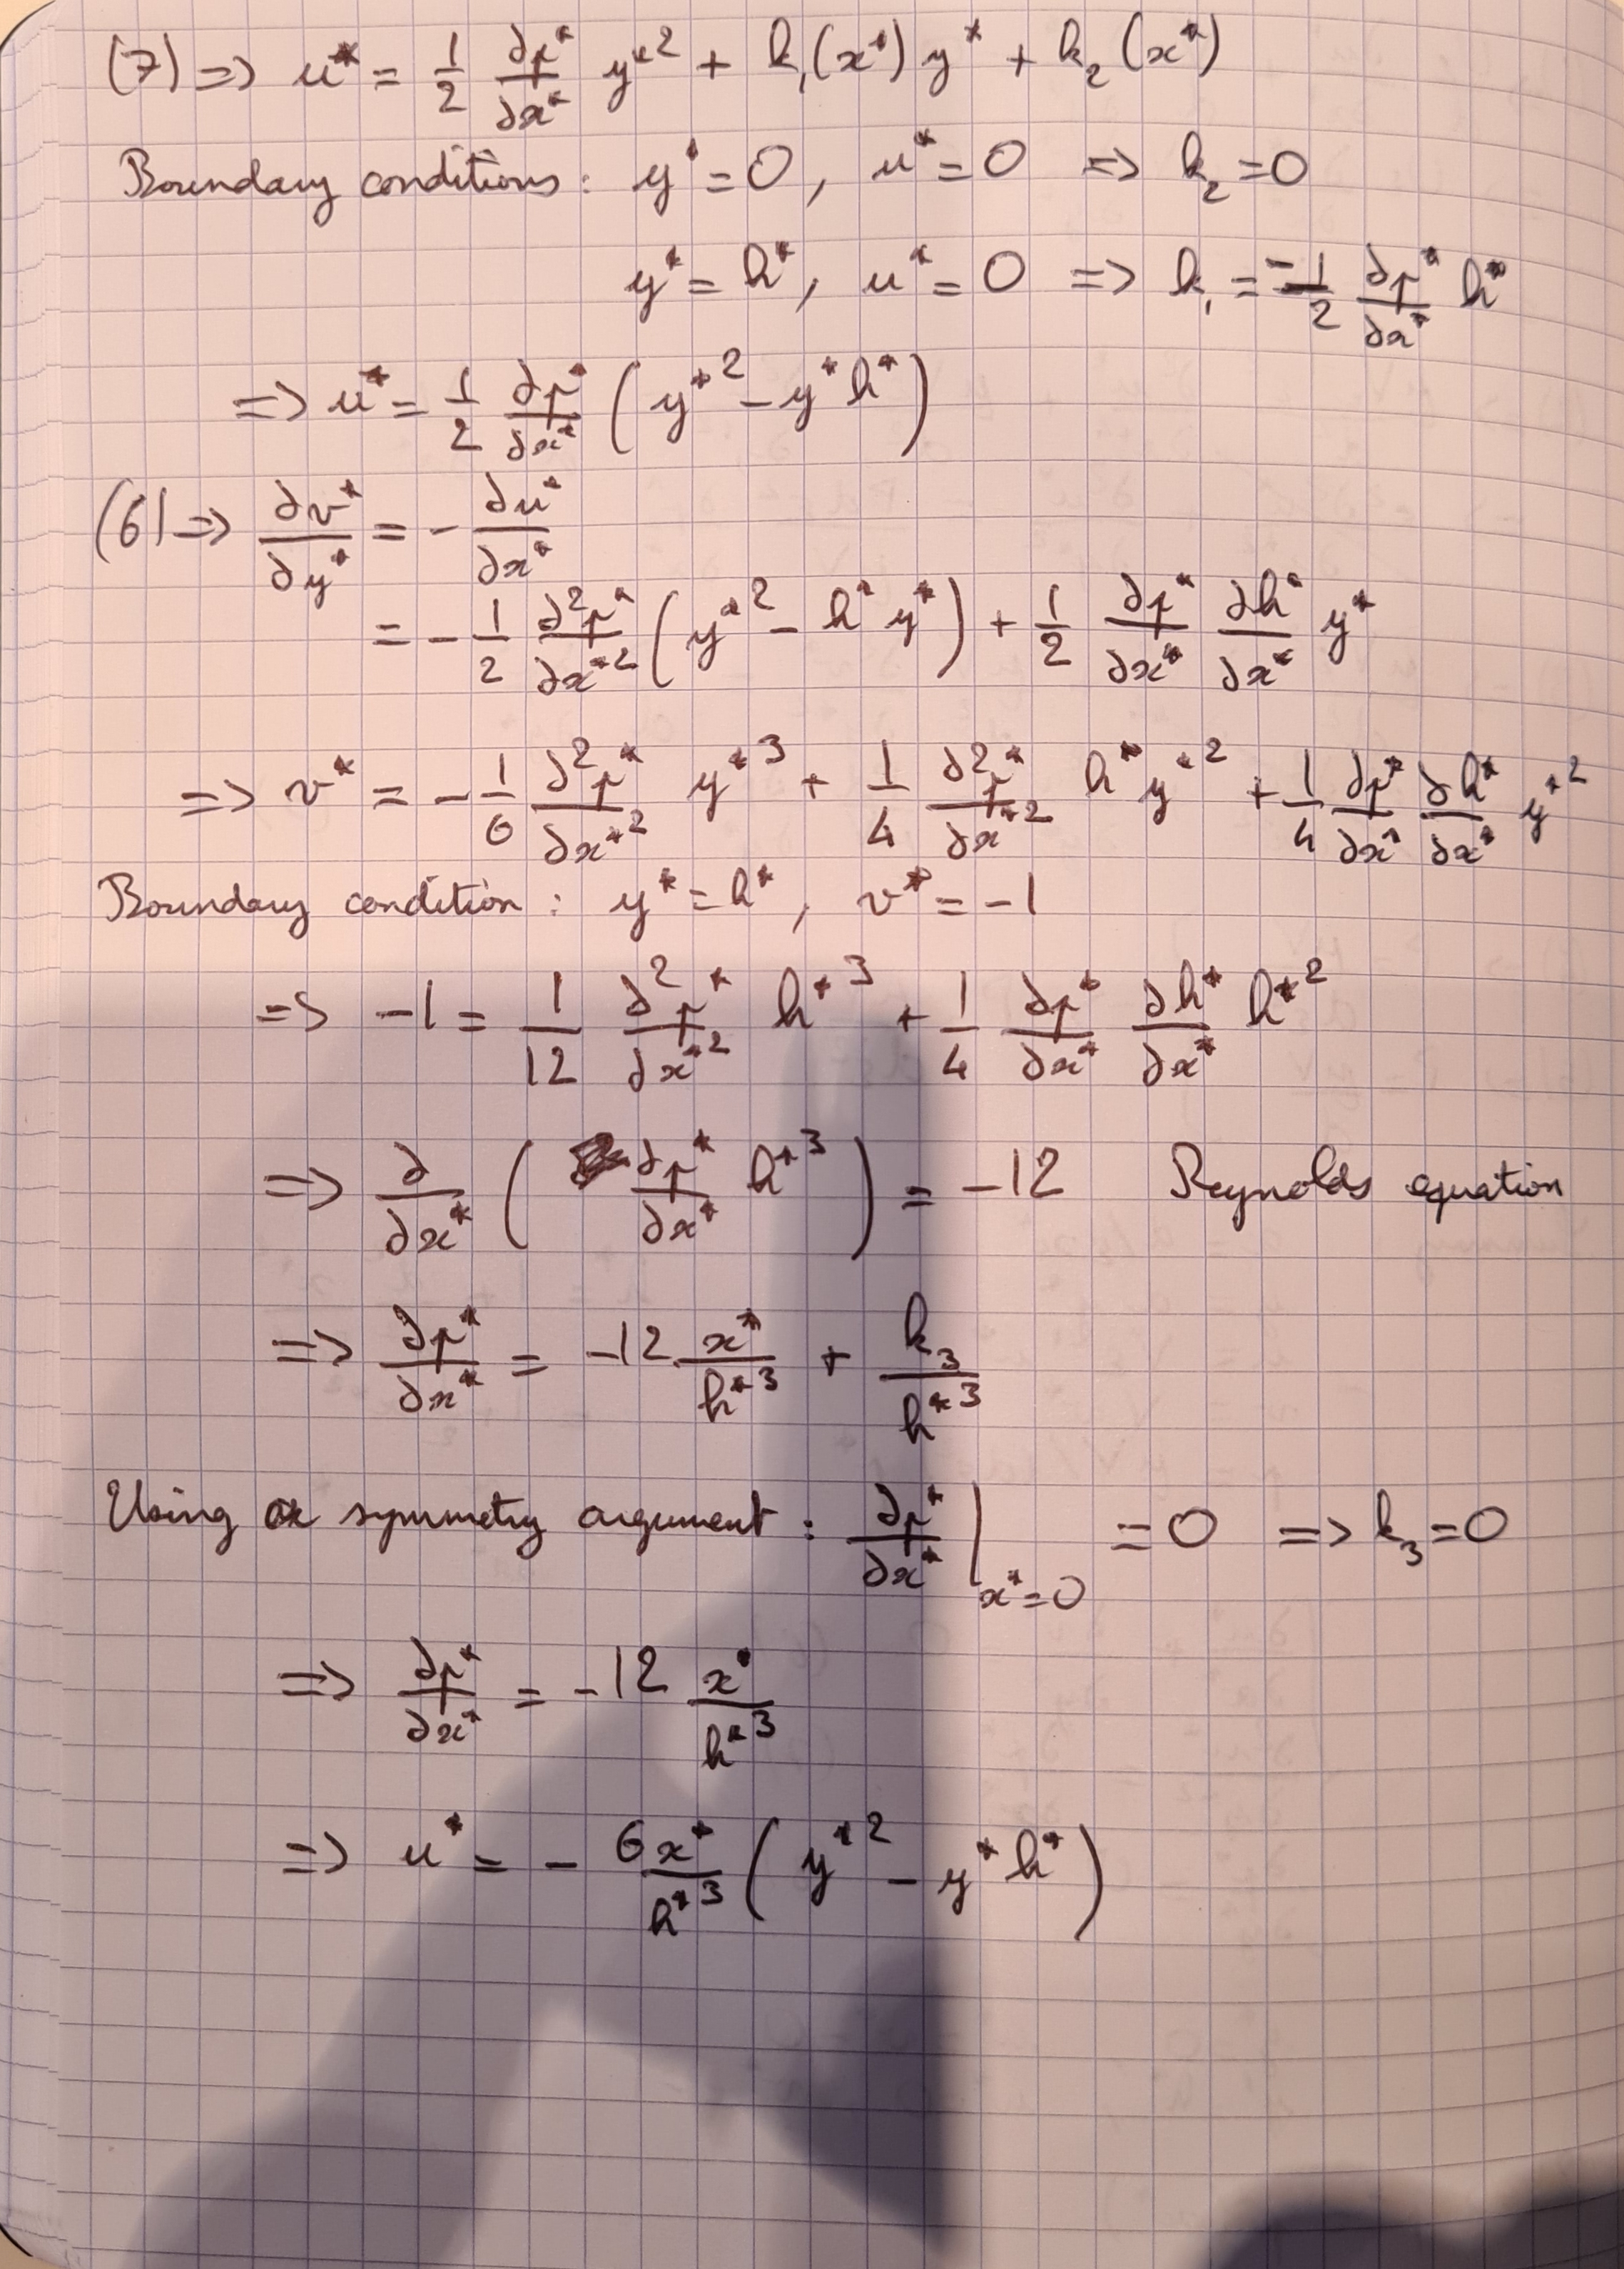 (7) => u* = 1/2 ∂p*/∂x* y*² + k₁(x*) y* + k₂(x*)
Boundary conditions: y* = 0, u* = 0 => k₂ = 0
y* = h*, u* = 0 => k₁ = -1/2 ∂p*/∂x* h*
=> u* = 1/2 ∂p*/∂x* (y*² - y* h*)
(6) => ∂v*/∂y* = - ∂u*/∂x*
= - 1/2 ∂²p*/∂x*² (y*² - h* y*) + 1/2 ∂p*/∂x* ∂h*/∂x* y*
=> v* = - 1/6 ∂²p*/∂x*² y*³ + 1/4 ∂²p*/∂x*² h* y*² + 1/4 ∂p*/∂x* ∂h*/∂x* y*²
Boundary condition: y* = h*, v* = -1
=> -1 = 1/12 ∂²p*/∂x*² h*³ + 1/4 ∂p*/∂x* ∂h*/∂x* h*²
=> ∂/∂x* (∂p*/∂x* h*³) = -12 Reynolds equation
=> ∂p*/∂x* = -12 x*/h*³ + k₃/h*³
Using a symmetry argument: ∂p*/∂x* |x*=0 = 0 => k₃ = 0
=> ∂p*/∂x* = -12 x*/h*³
=> u* = - 6x*/h*³ (y*² - y* h*)